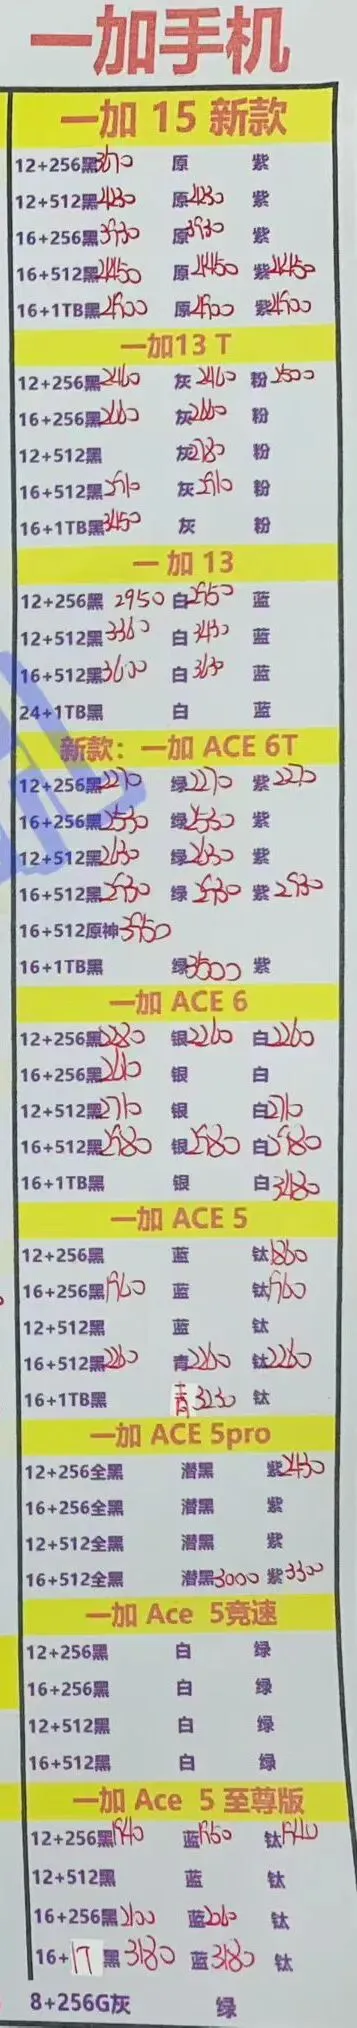 一加手机
一加 15 新款
12+256黑3670 原 紫
12+512黑4230 原4230 紫
16+256黑3930 原3930 紫
16+512黑4450 原4450 紫4450
16+1TB黑4900 原4900 紫4900
一加13 T
12+256黑2460 灰2460 粉2500
16+256黑2660 灰2660 粉
12+512黑 灰2780 粉
16+512黑2910 灰2910 粉
16+1TB黑3450 灰 粉
一加 13
12+256黑 2950 白2950 蓝
12+512黑3360 白3430 蓝
16+512黑3600 白3630 蓝
24+1TB黑 白 蓝
新款：一加 ACE 6T
12+256黑2270 绿2270 紫2270
16+256黑2530 绿2530 紫
12+512黑2630 绿2630 紫
16+512黑2930 绿2930 紫2930
16+512原神3950
16+1TB黑 绿3500 紫
一加 ACE 6
12+256黑2280 银2260 白2260
16+256黑2610 银 白
12+512黑2710 银 白2710
16+512黑2980 银2980 白2980
16+1TB黑 银 白3480
一加 ACE 5
12+256黑 蓝 钛1860
16+256黑1960 蓝 钛1960
12+512黑 蓝 钛
16+512黑2260 青2260 钛2260
16+1TB黑 青3230 钛
一加 ACE 5pro
12+256全黑 潜黑 紫2430
16+256全黑 潜黑 紫
12+512全黑 潜黑 紫
16+512全黑 潜黑3000 紫3300
一加 Ace 5竞速
12+256黑 白 绿
16+256黑 白 绿
12+512黑 白 绿
16+512黑 白 绿
一加 Ace 5 至尊版
12+256黑1940 蓝1950 钛1940
12+512黑 蓝 钛
16+256黑2100 蓝2060 钛
16+1T黑3180 蓝3180 钛
8+256G灰 绿